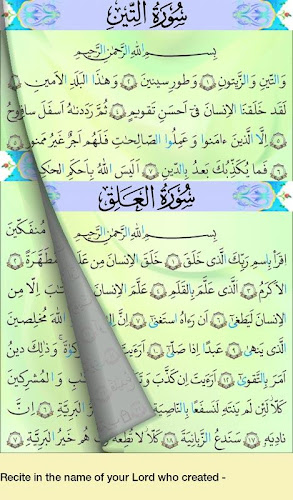 سُورَةُ التِّينِ
بِسْمِ اللهِ الرَّحْمٰنِ الرَّحِيمِ
وَالتِّينِ وَالزَّيْتُونِ ١ وَطُورِ سِينِينَ ٢ وَهٰذَا الْبَلَدِ الْأَمِينِ ٣
لَقَدْ خَلَقْنَا الْإِنسَانَ فِي أَحْسَنِ تَقْوِيمٍ ٤ ثُمَّ رَدَدْنَاهُ أَسْفَلَ
٥ إِلَّا الَّذِينَ ءَامَنُوا وَعَمِلُوا الصَّالِحَاتِ فَلَهُمْ أَجْرٌ غَيْرُ مَمْنُونٍ
٦ فَمَا يُكَذِّبُكَ بَعْدُ بِالدِّينِ ٧ أَلَيْسَ اللهُ بِأَحْكَمِ
سُورَةُ الْعَلَقِ
بِسْمِ اللهِ الرَّحْمٰنِ الرَّحِيمِ مُنفَكِّينَ
اقْرَأْ بِاسْمِ رَبِّكَ الَّذِي خَلَقَ ١ خَلَقَ الْإِنسَانَ مِنْ مُطَهَّرَةً ٢
الْأَكْرَمُ ٣ الَّذِي عَلَّمَ بِالْقَلَمِ ٤ إِلَّا مِنْ
الْإِنسَانَ لَيَطْغَى ٦ أَن رَءَاهُ اسْتَغْنَى ٧ إِنَّ اللهَ مُخْلِصِينَ
الَّذِي يَنْهَى ٩ عَبْدًا إِذَا صَلَّى ١٠ أَرَءَيْتَ وَذٰلِكَ دِينُ
أَمَرَ بِالتَّقْوَى ١٢ أَرَءَيْتَ إِن كَذَّبَ وَالْمُشْرِكِينَ
كَلَّا لَئِن لَمْ يَنتَهِ لَنَسْفَعًا بِالنَّاصِيَةِ الْبَرِيَّةِ ٦ إِنَّ
نَادِيَهُ ١٧ سَنَدْعُ الزَّبَانِيَةَ ١٨ كَلَّا لَا تُطِعْهُ هُمْ خَيْرُ الْبَرِيَّةِ ٧
Recite in the name of your Lord who created -